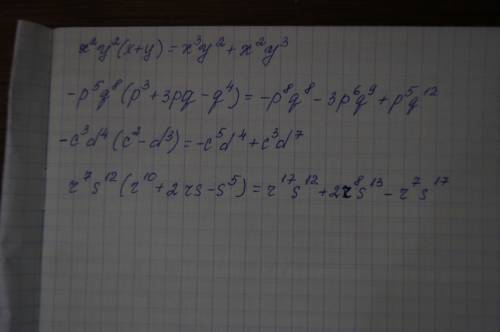 x²y²(x+y)=x³y²+x²y³
-p⁵q⁸(p³+3pq-q⁴)=-p⁸q⁸-3p⁶q⁹+p⁵q¹²
-c³d⁴(c²-d³)=-c⁵d⁴+c³d⁷
r⁷s¹²(r¹⁰+2rs-s⁵)=r¹⁷s¹²+2r⁸s¹³-r⁷s¹⁷